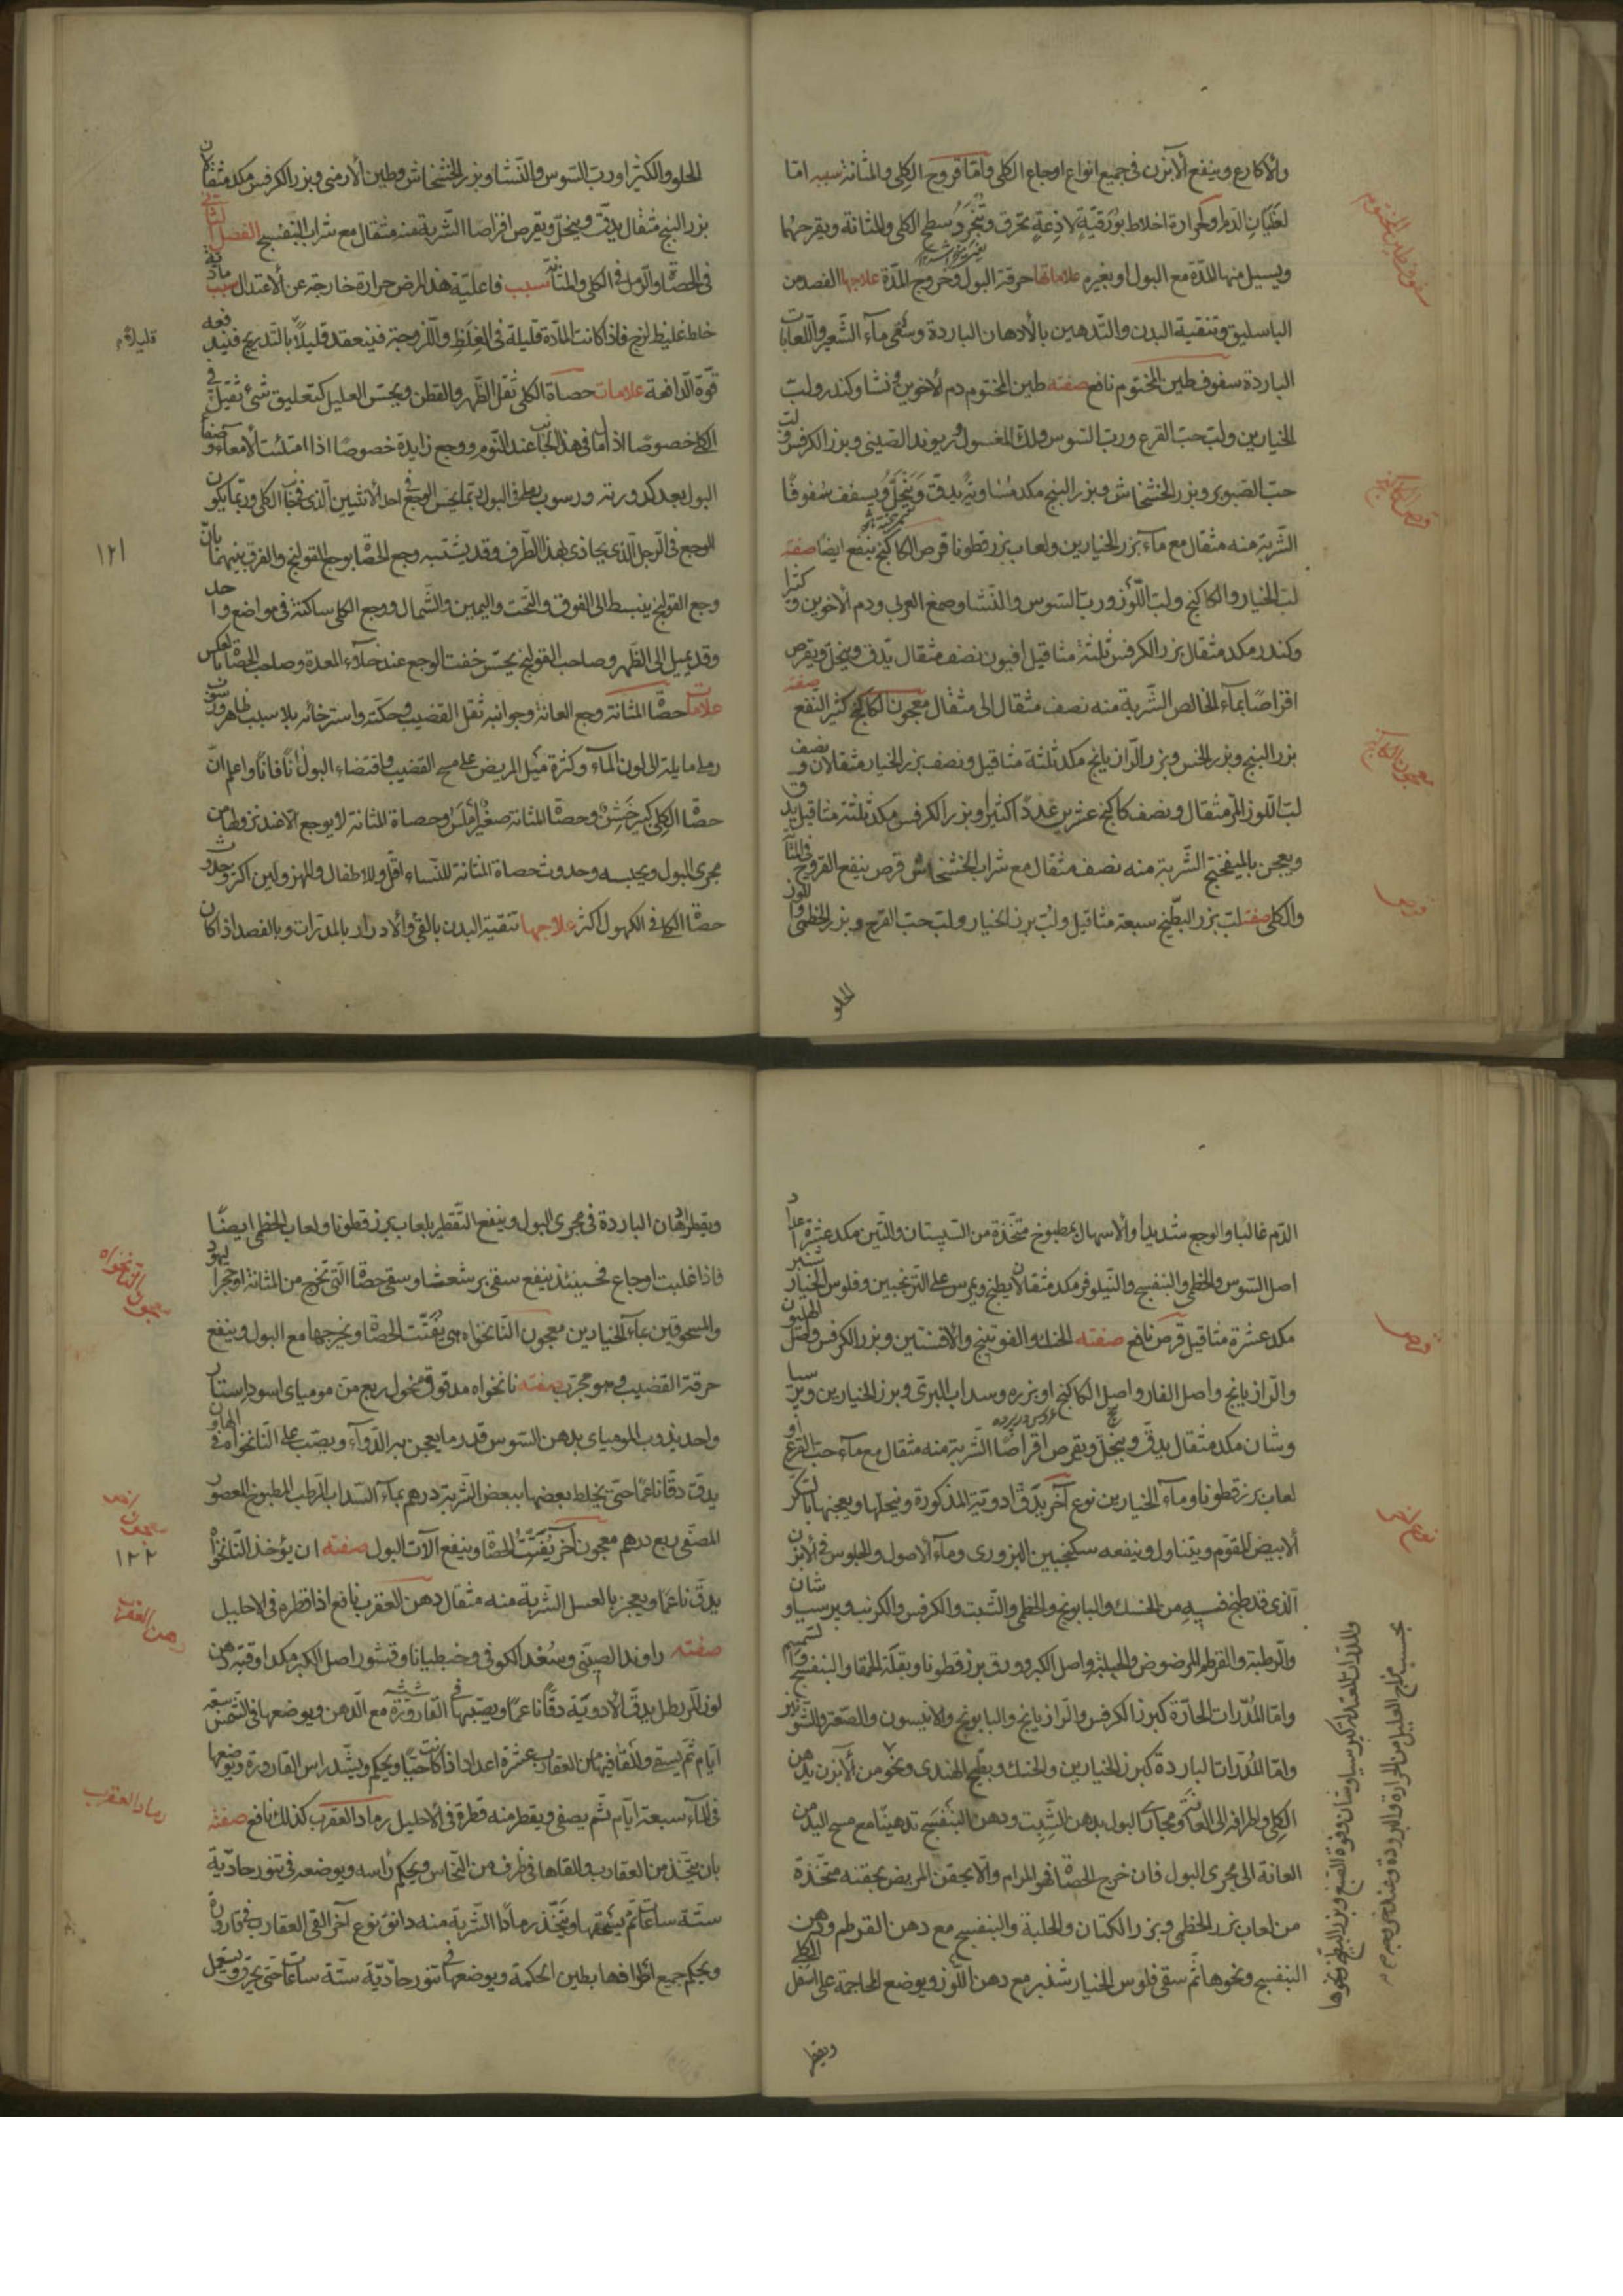 والأكارع وينفع الآبزن في جميع انواع اوجاع الكلى وامّا قروح الكلى والمثانة سببه امّا
لغليان الدم او لحرارة اخلاط بورقيّةٍ لاذعةٍ تحرق وتجرد سطح الكلى والمثانة ويقرحهما
ويسيل منها المدّة مع البول او بغيره علاماتها حرقة البول وخروج المدّة علاجها الفصد من
الباسليق وتنقية البدن والتدهين بالأدهان الباردة وسقى مآء الشّعير واللّعابات
الباردة سفوف طين المختوم نافع صفته طين المختوم دم الأخوين ونشا وكندر ولبّ
الخيارين ولبّ حبّ القرع وربّ السّوس ولكّ المغسول وريوند الصّينى وبزر الكرفس ولبّ
حبّ الصّنوبر وبزر الخشخاش وبزر البنج مكد متساوية يدقّ وينخلّ ويسفف سفوفًا
الشّربة منه مثقال مع مآء بزر الخيارين ولعاب بزر قطونا قرص الكاكنج ينفع ايضا صفته
لبّ الخيار والكاكنج ولبّ اللّوز وربّ السّوس والنّشا وصمغ العربى ودم الأخوين وكثيرا
وكندر مكد مثقال بزر الكرفس ثلثة مثاقيل افيون نصف مثقال يدقّ وينخلّ ويقرص
اقراصًا بمآء الخالص الشّربة منه نصف مثقال الى مثقال معجون الكاكنج كثير النفع صفته
بزر البنج وبزر الخس وبزر الرّازيانج مكد ثلثة مثاقيل ونصف بزر الخيار مثقالان ونصف
لبّ اللّوز المرّ مثقال ونصف كاكنج عشرين عددًا كثيرا وبزر الكرفس مكد ثلثة مثاقيل يدقّ
ويعجن بالميفختج الشّربة منه نصف مثقال مع شراب الخشخاش قرص ينفع القروح في المثانة
والكلى صفته لبّ بزر البطّيخ سبعة مثاقيل ولبّ بزر الخيار ولبّ حبّ القرع وبزر الخطمى واللوز
الحلو
سفوف طين المختوم
قرص الكاكنج
معجون الكاكنج
قرص
الحلو والكثيرا وربّ السّوس والنّشا وبزر الخشخاش وطين الأرمنى وبزر الكرفس مكد مثقالان
بزر البنج مثقال يدقّ وينخلّ ويقرص اقراصًا الشّربة منه مثقال مع شراب البنفسج الفصل الثانى
في الحصاة والرّمل في الكلى والمثانة سبب فاعليّة هذا المرض حرارة خارجة عن الأعتدال سبب مادّية
خلط غليظ لزج فاذا كانت المادّة قليلة في الغلظ واللّزوجة فينعقد قليلًا بالتّدريج فيند فعه
قوّة الدّافعة علامات حصاة الكلى ثقل الظّهر والقطن ويحسّ العليل كتعليق شئ ثقيل في
الكلى خصوصًا اذا مال في هذا الجانب عند النّوم ووجع زايدة خصوصًا اذا امتلئت الأمعآء وصفا
البول بعد كدورته ورسوب رملى في البول ربّما يحسّ الوجع في احد الأنثيين الّذى في جانب الكلى وربّما يكون
الوجع في الرّجل الّذى يحاذى بهذا الطّرف وقد يشتبه وجع الحصاة بوجع القولنج والفرق بينهما بانّ
وجع القولنج ينبسط الى الفوق والتّحت واليمين والشّمال ووجع الكلى ساكنة في مواضع واحد
وقد يميل الى الظّهر وصاحب القولنج يحسّ خفت الوجع عند خلآء المعدة وصاحب الحصاة بالعكس
علامات حصاة المثانة وجع العانة وجوانبه ثقل القضيب وحكّته واسترخائه بلا سبب ظاهر ورسوب
رملى مايلة الى لون المآء وكثرة ميل المريض على مسح القضيب واقتضاء البول آنًا فانًا واعلم انّ
حصاة الكلى كبير خشن وحصاة المثانة صغير أملس وحصاة المثانة لا يوجع الّا عند نزوطها من
مجرى البول ويحبسه وحدوث حصاة المثانة للنّساء اقلّ وللاطفال والمهزولين اكثر وحدوث
حصاة الكلى في الكهول اكثر علاجها تنقية البدن بالقئ والأدرار بالمدرّات وبالفصد اذا كان
١٢١
الدّم غالبا والوجع شديدا والأسهال بمطبوخ متّخذة من السّپستان والتّين مكد عشرة اعداد
اصل السّوس والخطمى والبنفسج والنّيلوفر مكد مثقالان يطبخ ويمرس على الترنجبين وفلوس الخيار شنبر
مكد عشرة مثاقيل قرص نافع صفته الحسك والفوتينج والأفسنتين وبزر الكرفس واصل الهليون
والرّازيانج واصل الغار واصل الكاكنج او بزره وسداب البرّى وبزر الخيارين وبر سيا
وشان مكد مثقال يدقّ وينخلّ ويقرص اقراصًا الشّربة منه مثقال مع مآء حبّ القرع او
لعاب بزر قطونا ومآء الخيارين نوع آخر يدقّ ادوية المذكورة وينخلها ويعجنها بالسّكر
الأبيض المقوّم ويتناول وينفعه سكنجبين البزورى ومآء الأصول والجلوس في الأبزن
الّذى قد طبخ فيه من الحسك والبابونج والخطمى والشّبت والكرفس والكرنب وبرسياوشان
والرّطبة والقرطم المرضوض والحلبة واصل الكبر وورق بزر قطونا وبقلة الحمقا والبنفسج
وامّا المدرّات الحارّة كبزر الكرفس والرّازيانج والبابونج والانيسون والصّعتر والشّونيز
وامّا المدرّات الباردة كبزر الخيارين والحسك وبطّيخ الهندى ونحو من الأبزن يدهن
الكلى واطرافه الى العانة ومجارى البول بدهن الشّبت ودهن البنفسج تدهينًا مع مسح اليد من
العانة الى مجرى البول فان خرج الحصاة فهو المرام والّا يحقن المريض بحقنه متّخذة
من لعاب بزر الخطمى وبزر الكتان والحلبة والبنفسج مع دهن القرطم ودهن
البنفسج ونحوها ثم سقى فلوس الخيار شنبر مع دهن اللّوز ويوضع المحاجمة على اسفل الكلى
ويقطر
قرص
نوع آخر
وللدرّات المعتدلة كبرسياوشان وفوة الصّبغ وبزر البطّيخ ونحوها
بحسب مزاج العليل من الحرارة والبرودة
ويقطر ادهان الباردة في مجرى البول وينفع التّقطير بلعاب بزر قطونا ولعاب الخطمى ايضًا
فاذا غلبت اوجاع فحينئذ ينفع سقى بر شعشا وسقى حصاة الّتى تخرج من المثانة او حجر اليهود
والمسحوقين بمآء الخيارين معجون النّانخواه هى يفتّت الحصاة ويخرجها مع البول وينفع
حرقة القضيب وهو مجرّب صفته نانخواه مدقوق منخول ربع من موميائى اسود استار
واحد يذوب الموميائى بدهن السّوس قدر ما يعجن به الدّوآء ويصبّ على النّانخواه في الهاون
يدقّ دقّا ناعمًا حتّى يخلط بعضها ببعض الشّربة درهم بمآء السّداب الرّطب المطبوخ المعصور
المصفّى ربع درهم معجون آخر يفتّت الحصاة وينفع الآت البول صفته ان يؤخذ النّانخواه
يدقّ ناعمًا ويعجن بالعسل الشّربة منه مثقال دهن العقرب نافع اذا قطره في الاحليل
صفته راوند الصينى وسُعْد الكوفى وجنطيانا وقشور اصل الكبر مكد اوقية دهن
لوز المرّ رطل يدقّ الأدويّة دقّا ناعمًا ويصبّها في القارورة مع الدّهن ويوضعها في الشّمس سبعة
ايّام ثمّ يصفى والقافيها من العقارب عشرة اعداد اذا كانت حيًّا ويحكم ويشّد راس القارورة ويوضعها
في المآء سبعة ايّام ثمّ يصفى ويقطر منه قطرة في الأحليل رماد العقرب كذلك نافع صفته
بان يتّخذ من العقارب والقاها في ظرف من النّحاس ويحكم رأسه ويوضعه في تنور حادّية
ستّة ساعات ثم يسحقها ويتّخذ رمادًا الشّربة منه دانق نوع آخر القى العقارب في قارورة
ويحكم جميع اطرافها بطين الحكمة ويوضعها في تنور حادّية ستّة ساعات حتّى يحرق ويستعمل
معجون النّانخواه
معجون آخر
١٢٢
دهن العقرب
رماد العقرب